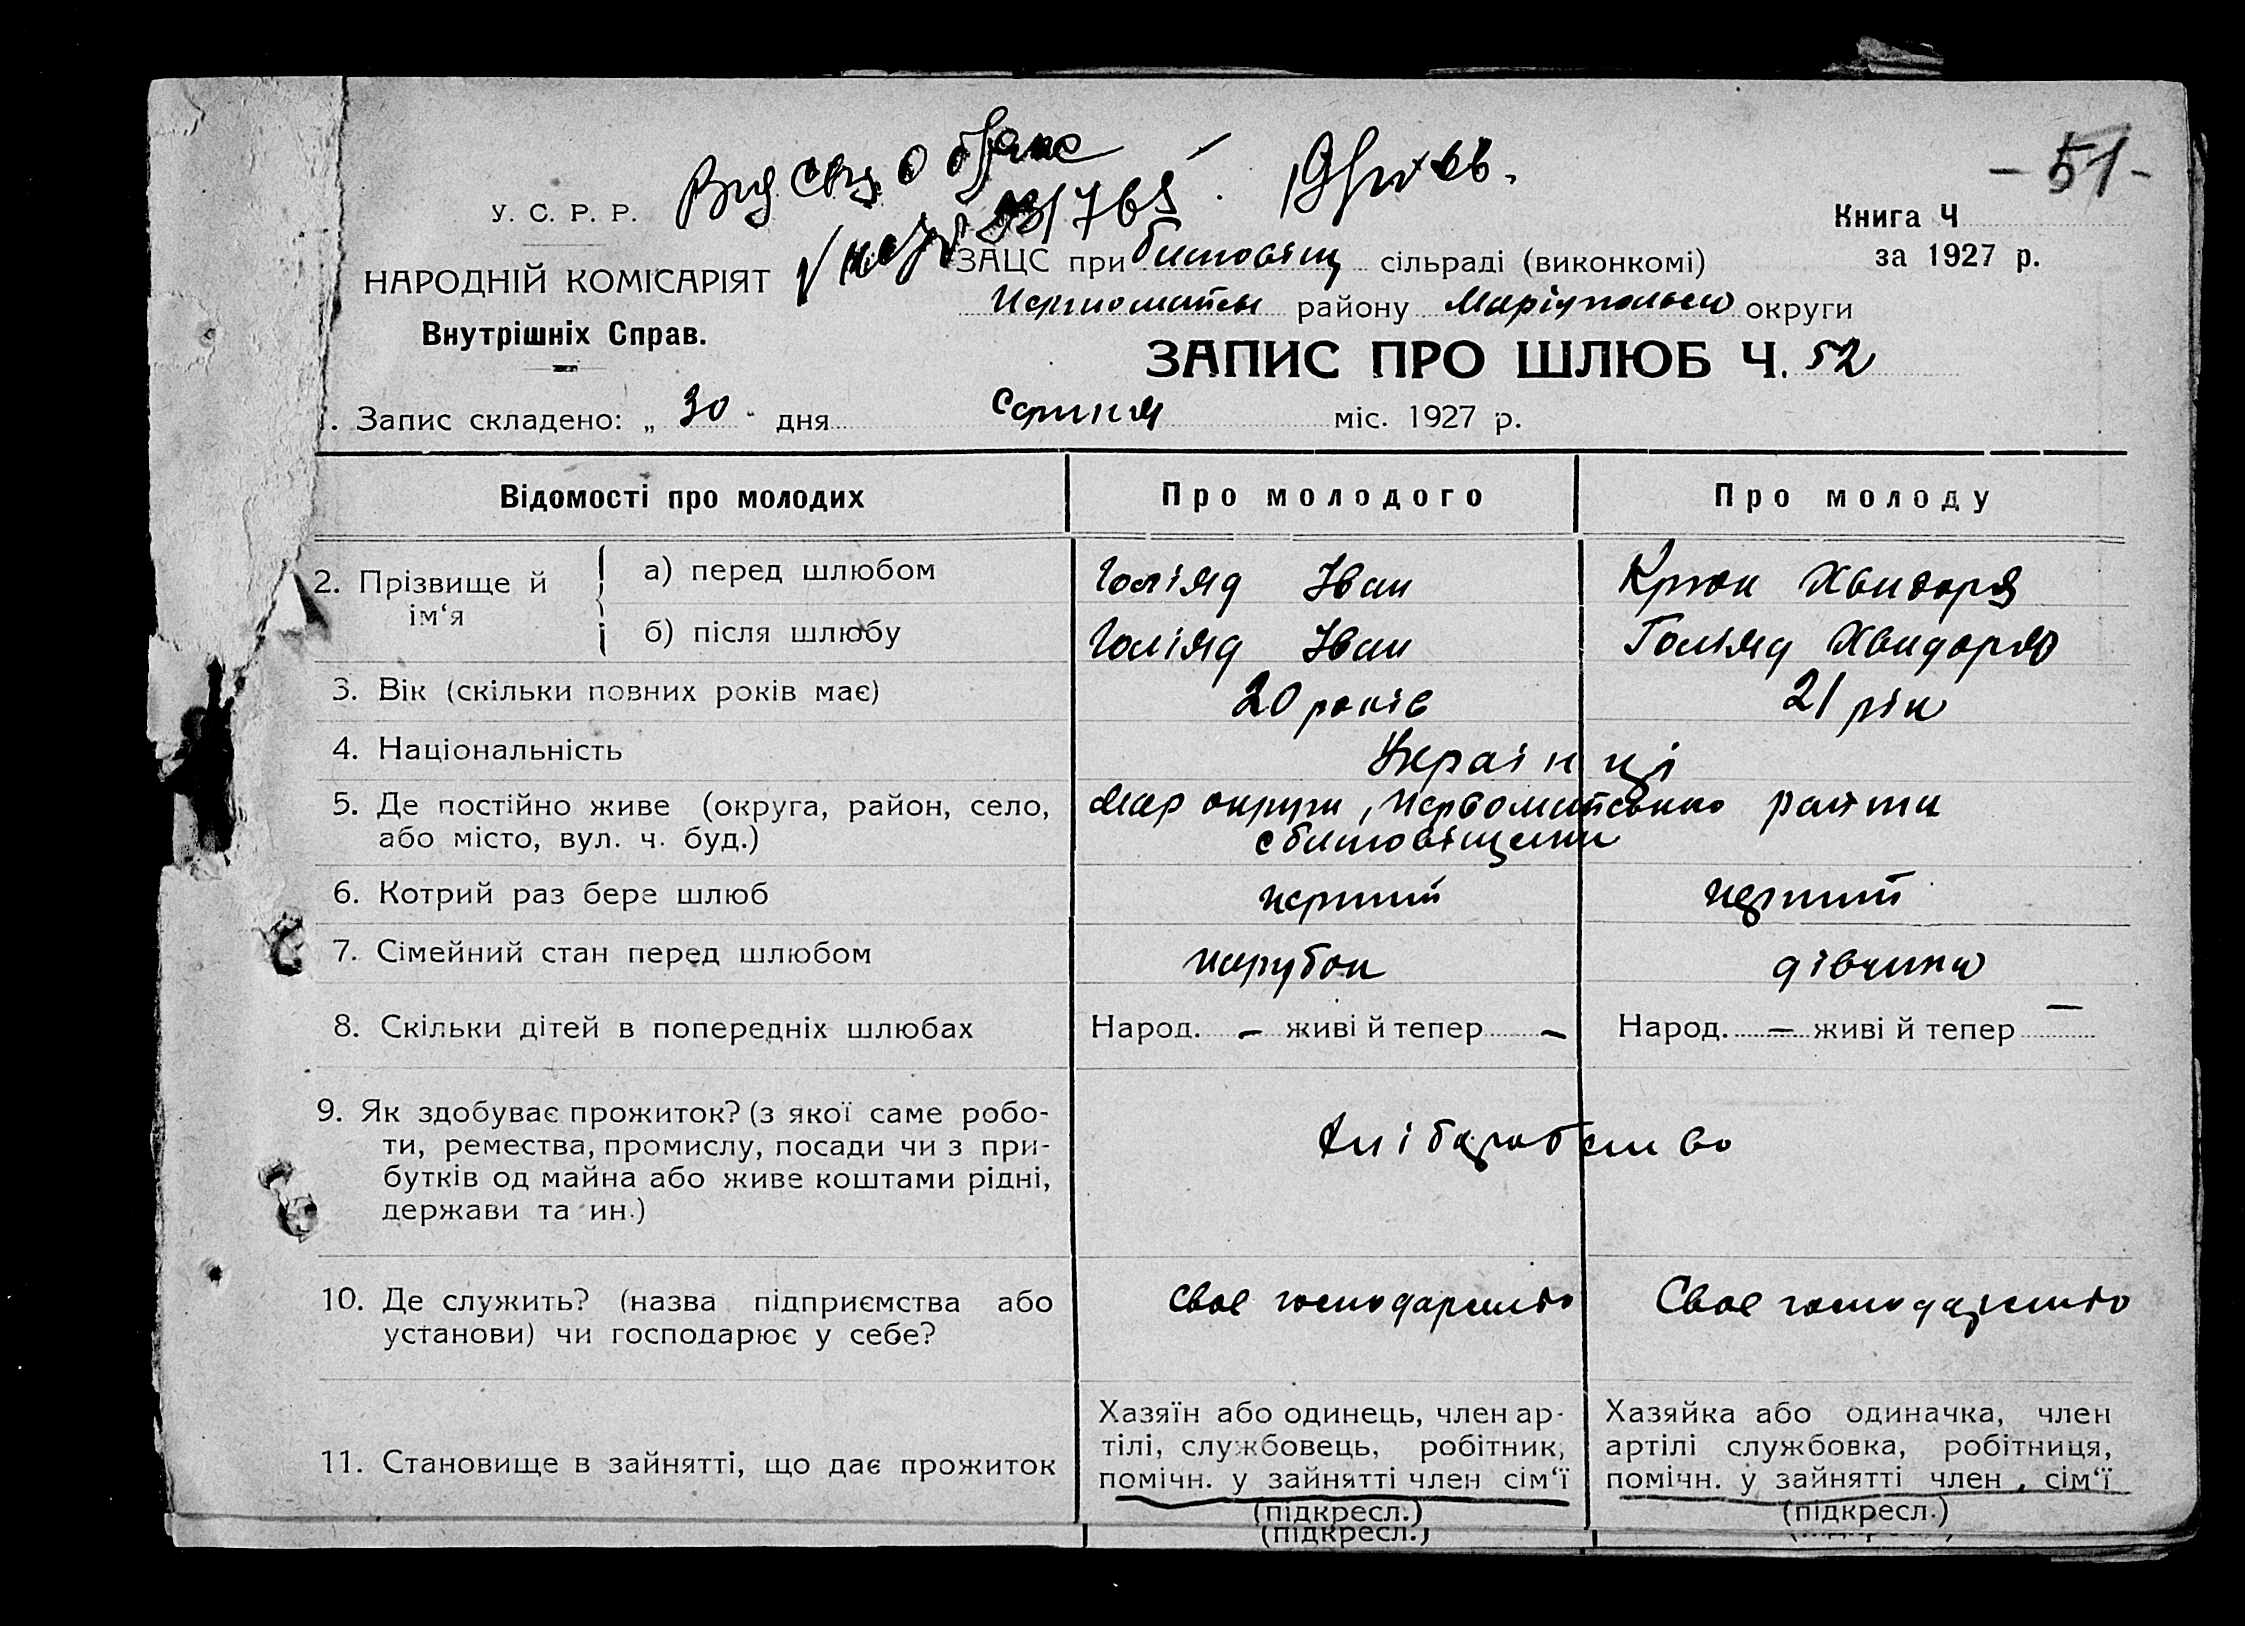 - 51 -
У. С. Р. Р.
НАРОДНІЙ КОМІСАРІЯТ
Внутрішніх Справ.
Книга Ч
за 1927 р.
ЗАЦС при сільраді (виконкомі)
району округи
ЗАПИС ПРО ШЛЮБ Ч. 52
. Запис складено: „ 30 " дня Серпня міс. 1927 р.
Відомості про молодих Про молодого Про молоду
2. Прізвище й ім‘я а) перед шлюбом Голіяд Іван Крюк Хвидоря
б) після шлюбу Голіяд Іван Голіяд Хвидоря
3. Вік (скільки повних років має) 20 років 21 рік
4. Національність Українці
5. Де постійно живе (округа, район, село, Мар округи, Первомайського
або місто, вул. ч. буд.)
6. Котрий раз бере шлюб перший перший
7. Сімейний стан перед шлюбом парубок дівчина
8. Скільки дітей в попередніх шлюбах Народ. – живі й тепер – Народ. – живі й тепер –
9. Як здобуває прожиток? (з якої саме робо-
ти, ремества, промислу, посади чи з при- хліборобство
бутків од майна або живе коштами рідні,
держави та ин.)
10. Де служить? (назва підприємства або Своє господарство Своє господарство
установи) чи господарює у себе?
11. Становище в зайнятті, що дає прожиток
Хазяїн або одинець, член ар-
тілі, службовець, робітник,
помічн. у зайнятті член сім‘ї
(підкресл.)
(підкресл.)
Хазяйка або одиначка, член
артілі службовка, робітниця,
помічн. у зайнятті член , сім‘ї
(підкресл.)